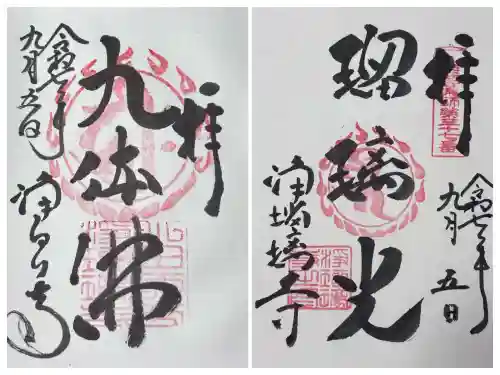 拝
九体佛
令和七年
九月五日
浄るり寺
拝
瑠璃光
令和七年
九月五日
浄瑠璃寺